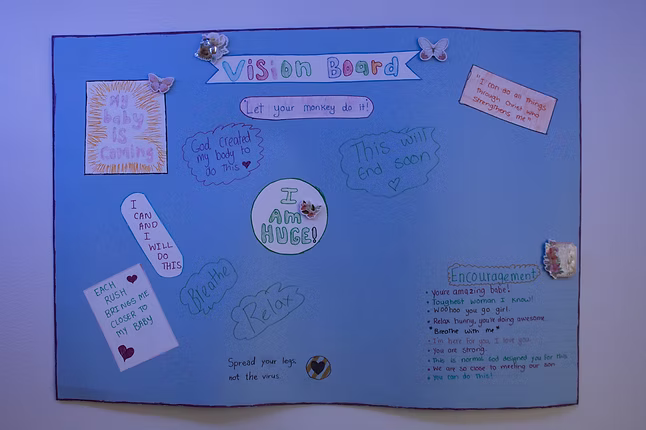 Vision Board
"Let your monkey do it!"
My
baby
IS
Coming
God created
my body to
do this
This will
End soon
"I can do all things
through Christ who
strengthens me"
I
CAN
AND
I
WILL
DO
THIS
I
AM
HUGE!
EACH
RUSH
BRINGS ME
CLOSER TO
MY BABY
Breathe
Relax
Encouragement
• You're amazing babe!
• Toughest woman I know!
• Woohoo you go girl.
• Relax hunny, you're doing awesome.
"Breathe with me"
• I'm here for you, I love you.
• You are strong
• This is normal God designed you for this
• We are so close to meeting our son
• You can do this!
Spread your legs,
not the virus